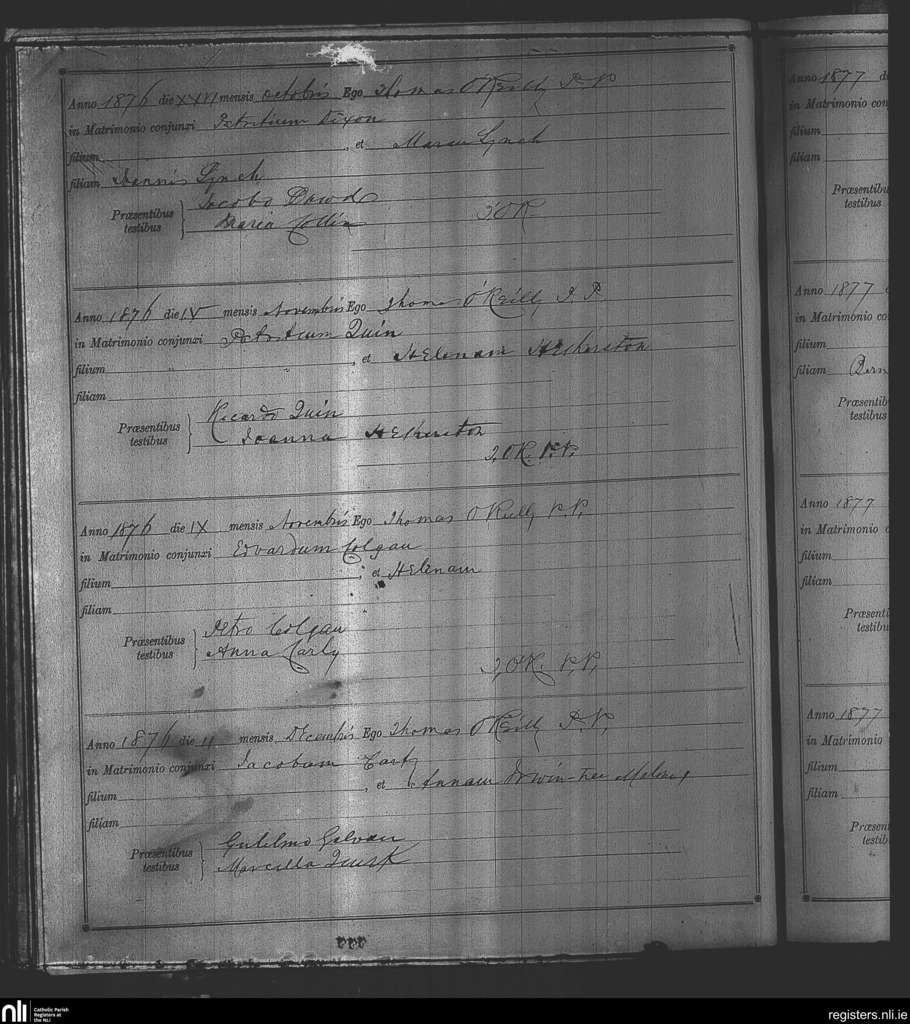 Anno 1876 die XXVI mensis Octobris Ego Thomas O'Reilly P. P.
in Matrimonio conjunxi Patritium Dixon
filium , et Mariam Lynch
filiam Joannis Lynch
Præsentibus testibus Jacobo Dowd
Maria Collin
T. O'R.
Anno 1876 die IV mensis Novembris Ego Thomas O'Reilly P. P.
in Matrimonio conjunxi Patritium Quin
filium " " , et Helenam Hetherston
filiam
Præsentibus testibus Ricardo Quin
Joanna Hetherston
T. O'R. P.P.
Anno 1876 die IX mensis Novembris Ego Thomas O'Reilly P. P.
in Matrimonio conjunxi Edvardum Colgan
filium , et Helenam
filiam
Præsentibus testibus Petro Colgan
Anna Carly
T. O'R. P. P.
Anno 1876 die 11 mensis Decembris Ego Thomas O'Reilly P. P.
in Matrimonio conjunxi Jacobum
filium , et Annam Irwin
filiam
Præsentibus testibus Gulielmo Galvan
Marcella
Anno 1877
in Matrimonio
filium
filiam
Anno 1877
in Matrimonio
filium
filiam
Anno 1877
in Matrimonio
filium
filiam
Anno 1877
in Matrimonio
filium
filiam
nli Catholic Parish
Registers at
the NLI
registers.nli.ie